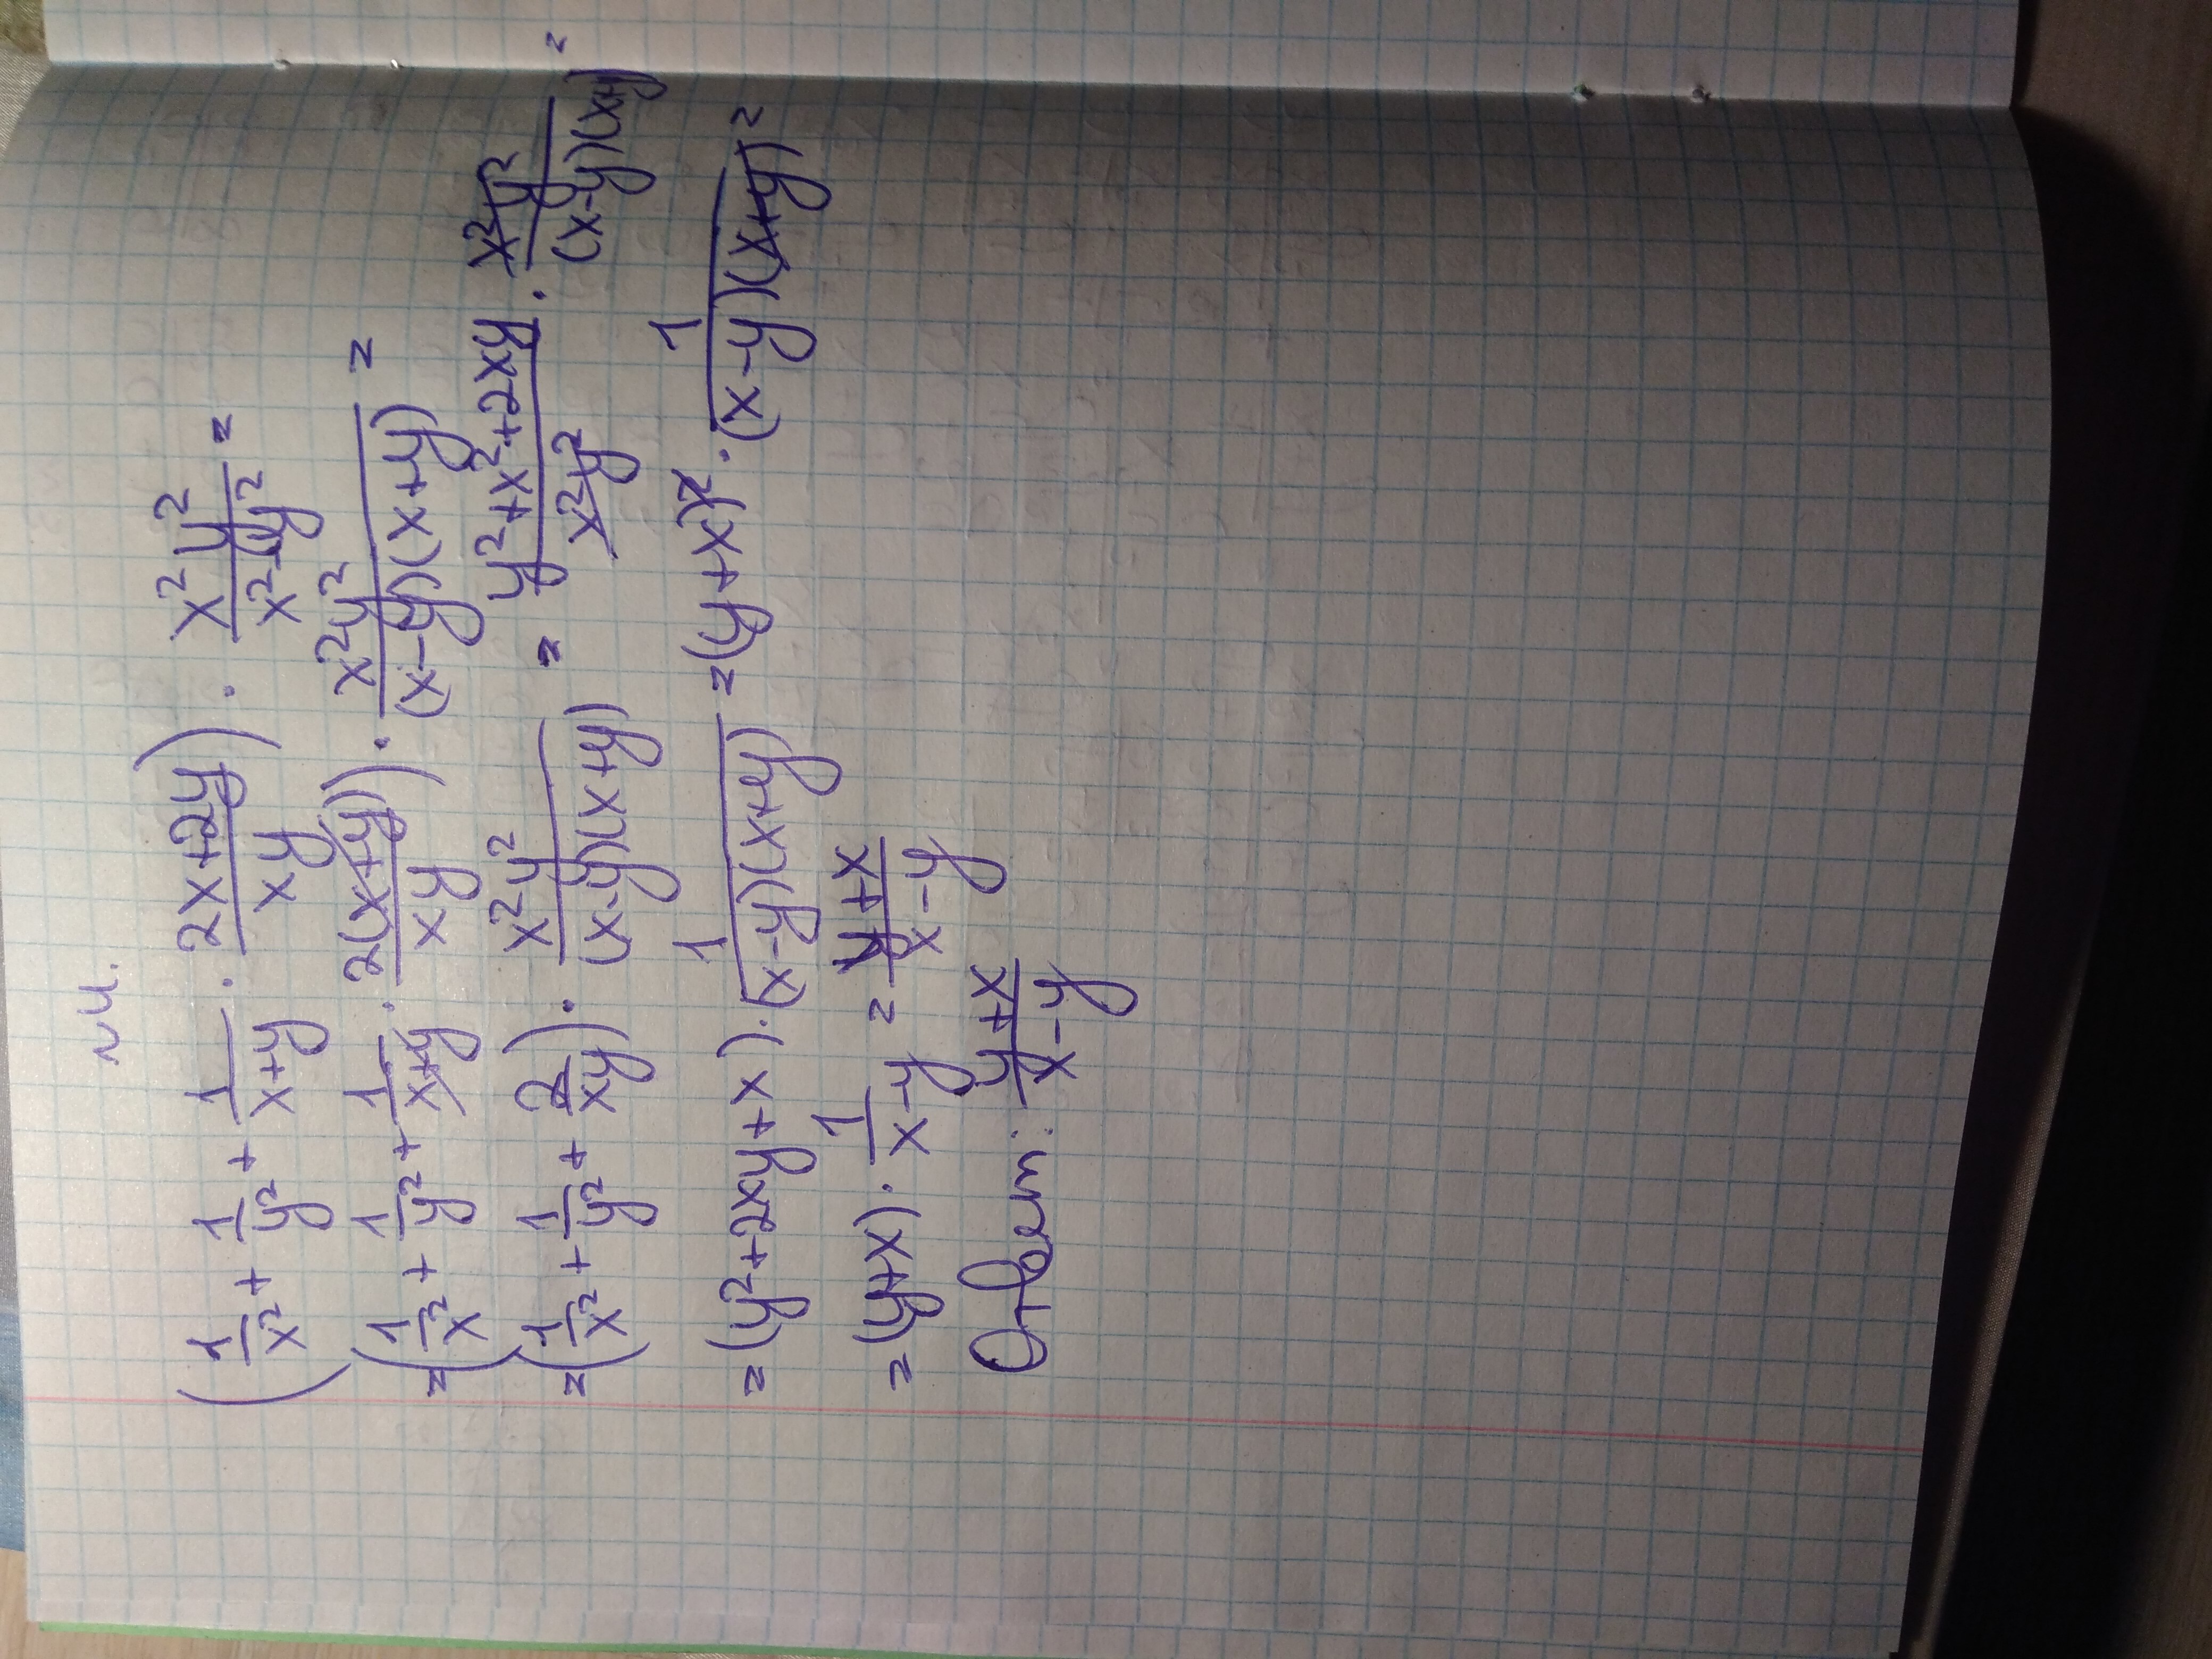 №4.
(1/x² + 1/y² + 1/(x+y) · (2x+2y)/(xy)) · x²y²/(x²-y²) =
=(1/x² + 1/y² + 1/(x+y) · 2(x+y)/(xy)) · x²y²/((x-y)(x+y)) =
=(1/x² + 1/y² + 2/(xy)) · x²y²/((x-y)(x+y)) = (y²+x²+2xy)/(x²y²) · x²y²/((x-y)(x+y)) =
=(y²+2xy+x) · 1/((x-y)(x+y)) =(y+x)² · 1/((x-y)(x+y)) =
=(y+x) · 1/(x-y) = (y+x)/(x-y)
Ответ: (y+x)/(x-y)